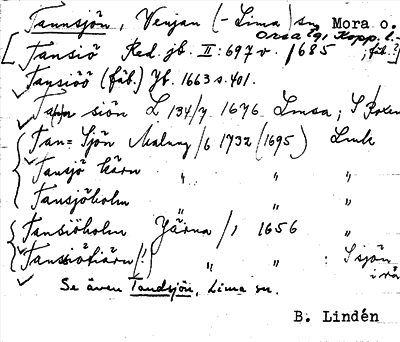 Tannsjön, Venjan (- Lima) sn Mora o.
Orsa tg. Kopp. l.
[Tansiö Red. jb. II: 697 v. 1685 ; fäb.?]
Tansiöö (fäb.) Jb. 1663 s. 401.
siön L 134/7 1676 Limsa; S
Tan= Sjön Malung /6 1732 (1695) Link
Tansjö kärn " " "
Tansjöholm " " "
Tansiöholm Järna /1 1656 "
Tanssiökiärn (!) " " : Ssjön
i rå
Se även Tandsjön, Lima sn.
B. Lindén